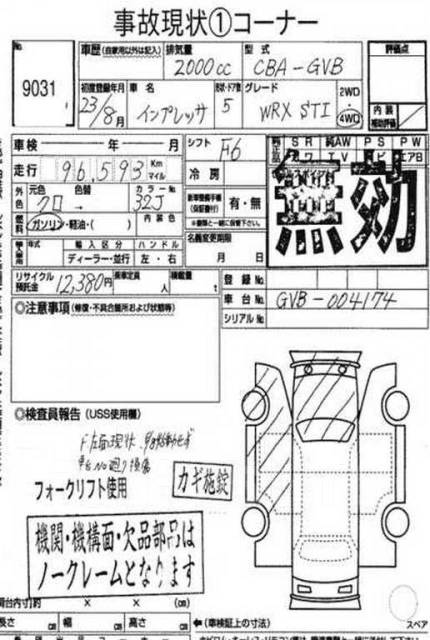 事故現状①コーナー
9031
車歴 (自家用以外は記入) 排気量 型式 評価点
2000cc CBA-GVB
初度登録年月 車名 形状・ドア数 グレード 2WD
23/8月 インプレッサ 5 WRX STI 4WD
内装 補助評価
車検 年 月 シフト F6 SR 純AW PS PW
走行 96,593 Km マイル 冷房
外色 元色 色替 カラーNo.
クロ 32J 有・無
燃料 ガソリン・軽油・( ) 内装色 無効
輸入車用 年式 輸入区分 ハンドル 名義変更期限
ディーラー・並行 左・右 月 日
リサイクル預託金 12,380円 乗車定員 人 積載量 t 登録No.
車台No. GVB-004174
◎注意事項 (修復・不具合箇所および状態等) シリアルNo.
◎検査員報告 (USS使用欄)
F左面現状
車台No廻り損傷
カギ施錠
フォークリフト使用
機関・機構面・欠品部品は
ノークレームとなります
荷台内寸約 × × (cm)
長さ cm 幅 cm 高さ cm ←(車検証上の寸法) スペア